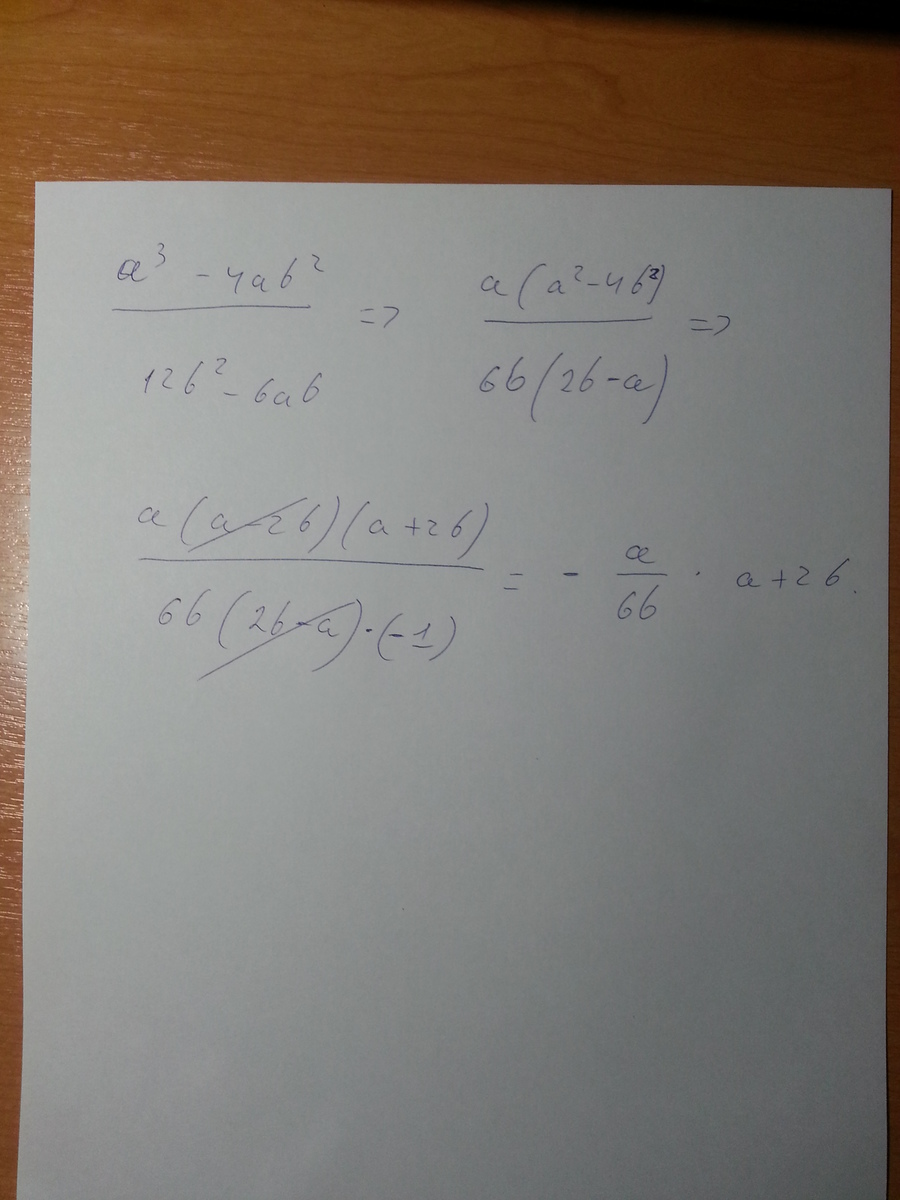 a³ - 4ab² / 12b² - 6ab => a(a² - 4b²) / 6b(2b - a) =>
a(a - 2b)(a + 2b) / 6b(2b - a)·(-1) = - a / 6b · a + 2b.